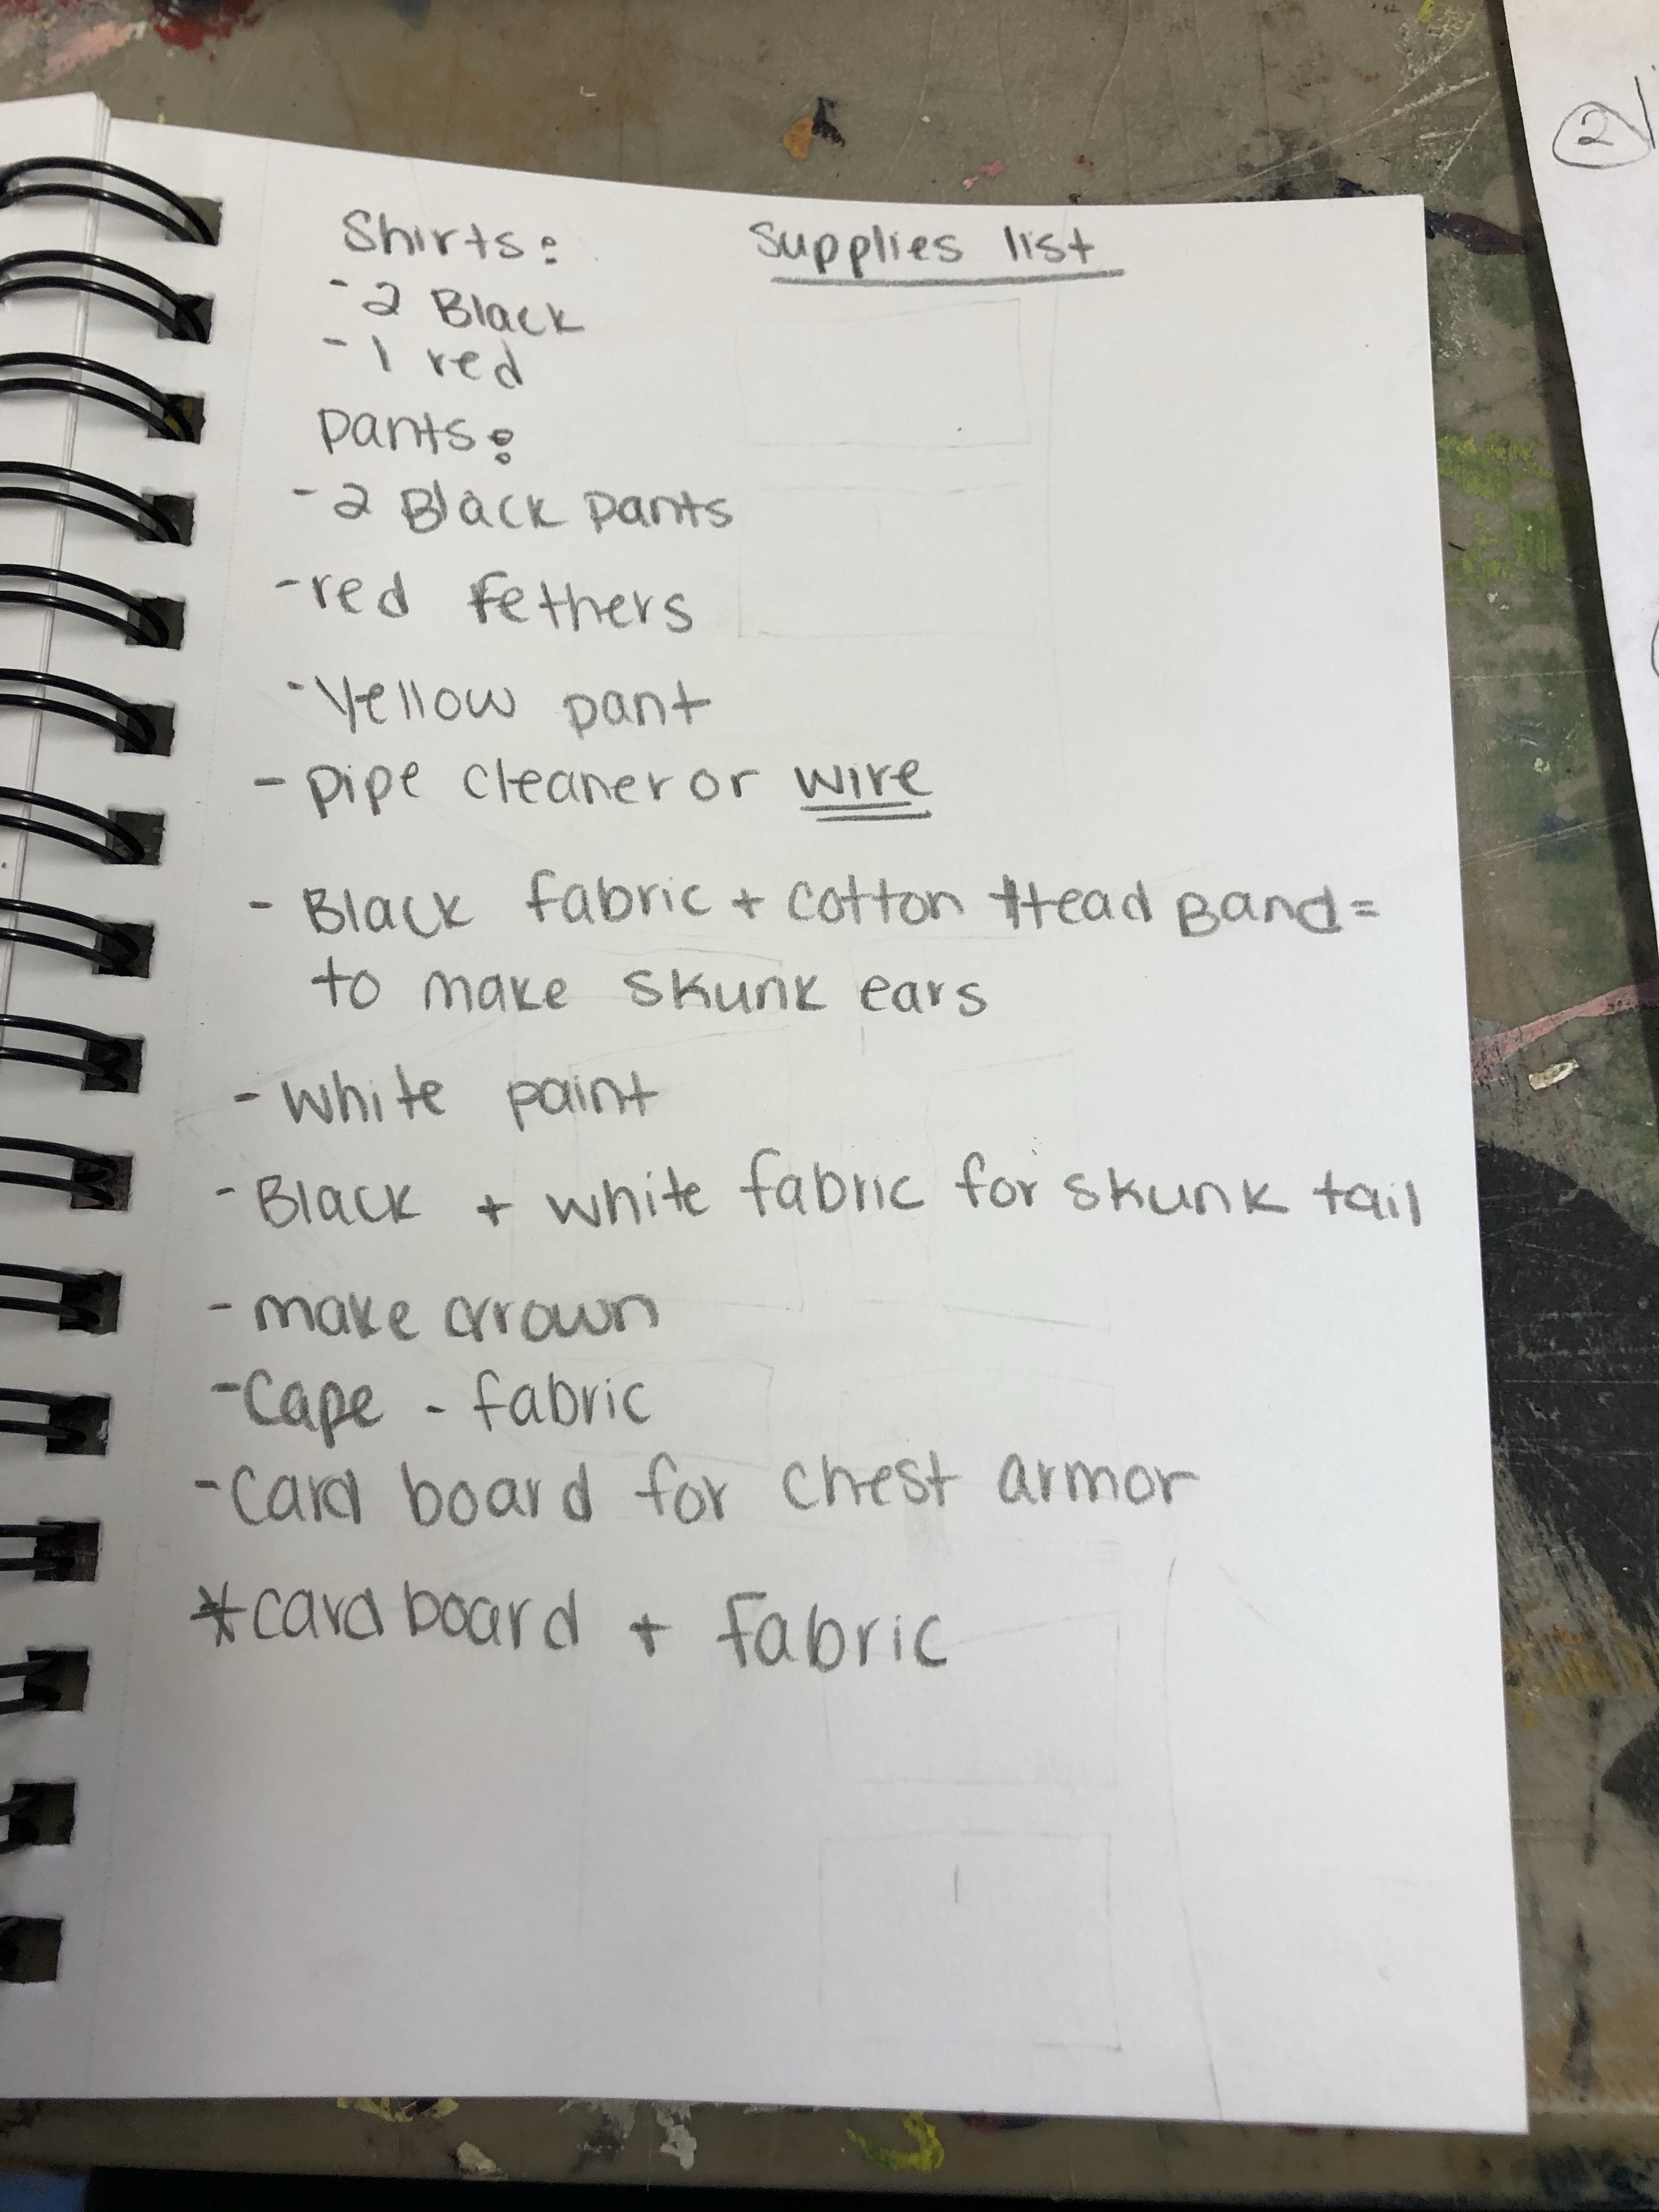 Supplies list
Shirts:
- 2 Black
- 1 red
Pants:
- 2 Black pants
- red Fethers
- Yellow pant
- pipe cleaner or wire
- Black fabric + cotton Head Band =
to make skunk ears
- white paint
- Black + white fabric for skunk tail
- make crown
- Cape - fabric
- Card board for chest armor
* cardboard + Fabric
2